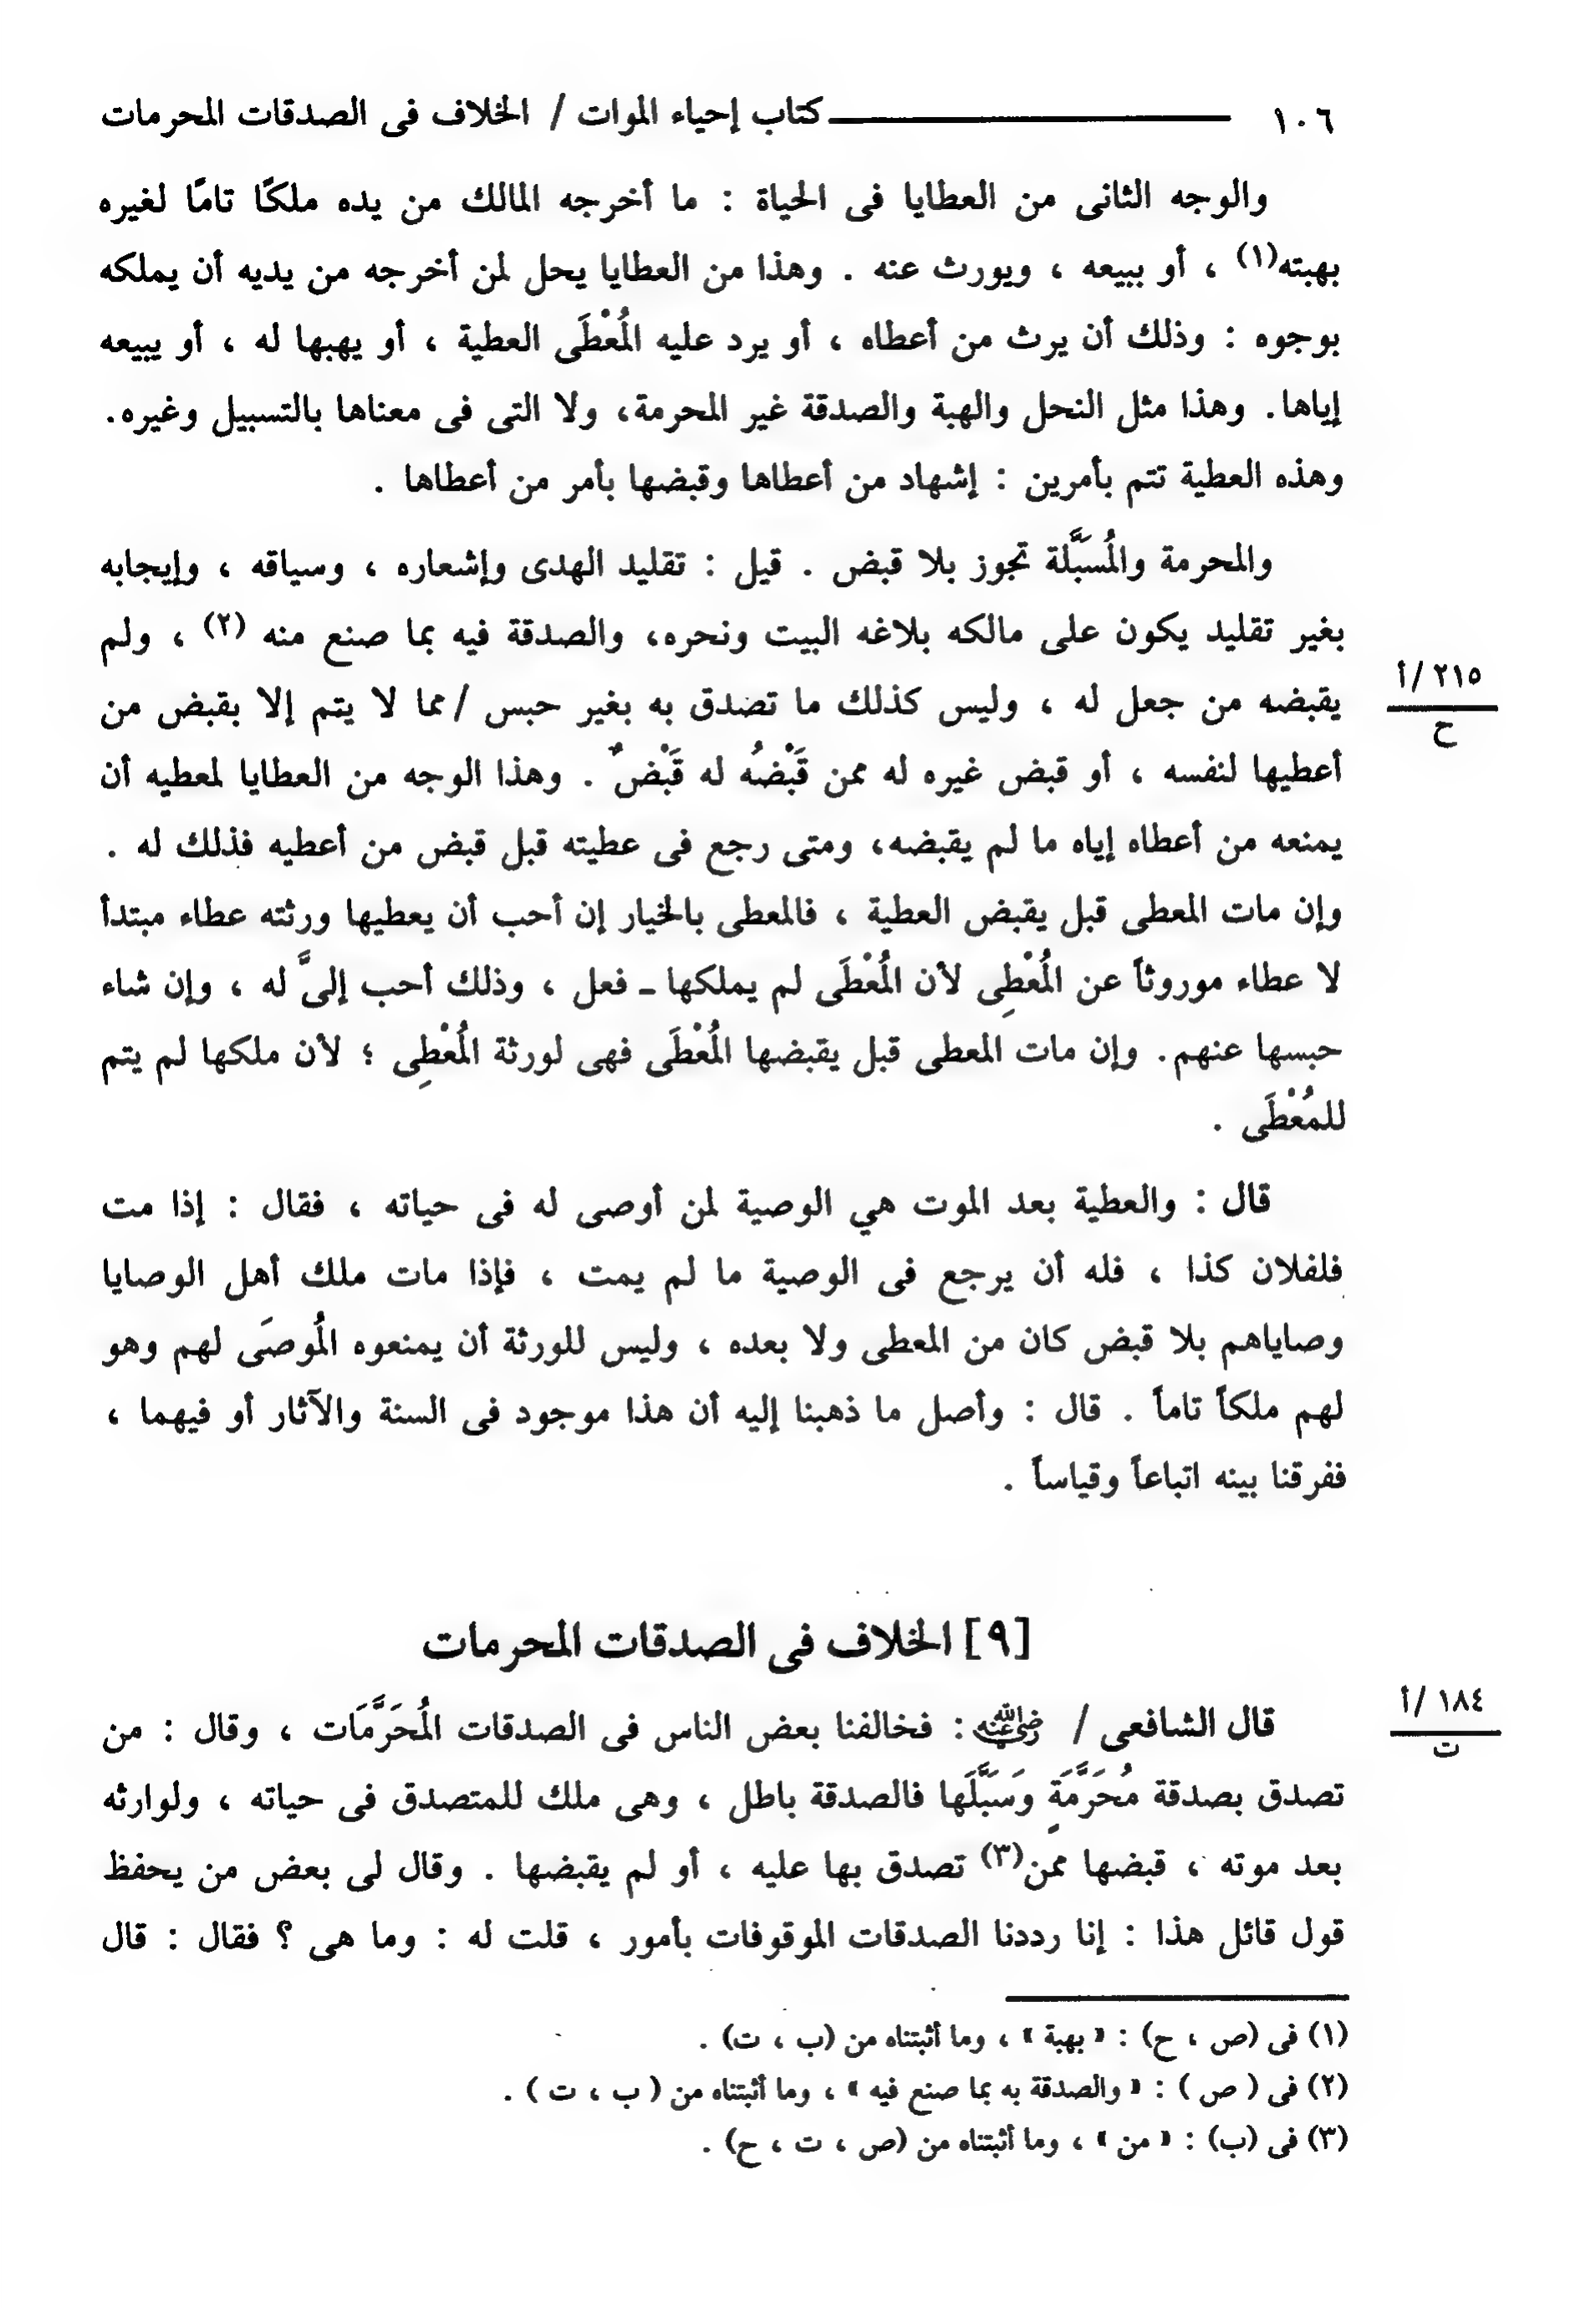 ١٠٦ كتاب إحياء الموات / الخلاف فى الصدقات المحرمات
والوجه الثانى من العطايا فى الحياة : ما أخرجه المالك من يده ملكًا تامًا لغيره
بهبته(١) ، أو ببيعه ، ويورث عنه . وهذا من العطايا يحل لمن أخرجه من يديه أن يملكه
بوجوه : وذلك أن يرث من أعطاه ، أو يرد عليه المُعْطَى العطية ، أو يهبها له ، أو يبيعه
إياها. وهذا مثل النحل والهبة والصدقة غير المحرمة، ولا التى فى معناها بالتسبيل وغيره.
وهذه العطية تتم بأمرين : إشهاد من أعطاها وقبضها بأمر من أعطاها .
والمحرمة والمُسَبَّلة تجوز بلا قبض . قيل : تقليد الهدى وإشعاره ، وسياقه ، وإيجابه
بغير تقليد يكون على مالكه بلاغه البيت ونحره، والصدقة فيه بما صنع منه (٢) ، ولم
٢١٥ /أ
يقبضه من جعل له ، وليس كذلك ما تصدق به بغير حبس / مما لا يتم إلا بقبض من
ح
أعطيها لنفسه ، أو قبض غيره له ممن قَبْضُه له قَبْضٌ . وهذا الوجه من العطايا لمعطيه أن
يمنعه من أعطاه إياه ما لم يقبضه، ومتى رجع فى عطيته قبل قبض من أعطيه فذلك له .
وإن مات المعطى قبل يقبض العطية ، فالمعطى بالخيار إن أحب أن يعطيها ورثته عطاء مبتدأ
لا عطاء موروثاً عن المُعْطِى لأن المُعْطَى لم يملكها ـ فعل ، وذلك أحب إلىَّ له ، وإن شاء
حبسها عنهم. وإن مات المعطى قبل يقبضها المُعْطَى فهى لورثة المُعْطِى ؛ لأن ملكها لم يتم
للمُعْطَى .
قال : والعطية بعد الموت هي الوصية لمن أوصى له فى حياته ، فقال : إذا مت
فلفلان كذا ، فله أن يرجع فى الوصية ما لم يمت ، فإذا مات ملك أهل الوصايا
وصاياهم بلا قبض كان من المعطى ولا بعده ، وليس للورثة أن يمنعوه المُوصَى لهم وهو
لهم ملكاً تاماً . قال : وأصل ما ذهبنا إليه أن هذا موجود فى السنة والآثار أو فيهما ،
ففرقنا بينه اتباعاً وقياساً .
[٩] الخلاف فى الصدقات المحرمات
١٨٤ /أ
ت
قال الشافعى / رضي الله عنه : فخالفنا بعض الناس فى الصدقات المُحَرَّمَات ، وقال : من
تصدق بصدقة مُحَرَّمَةٍ وَسَبَّلَها فالصدقة باطل ، وهى ملك للمتصدق فى حياته ، ولوارثه
بعد موته ، قبضها ممن(٣) تصدق بها عليه ، أو لم يقبضها . وقال لى بعض من يحفظ
قول قائل هذا : إنا رددنا الصدقات الموقوفات بأمور ، قلت له : وما هى ؟ فقال : قال
(١) فى (ص ، ح) : « بهبة » ، وما أثبتناه من (ب ، ت) .
(٢) فى ( ص ) : « والصدقة به بما صنع فيه » ، وما أثبتناه من ( ب ، ت ) .
(٣) فى (ب) : « من » ، وما أثبتناه من (ص ، ت ، ح) .